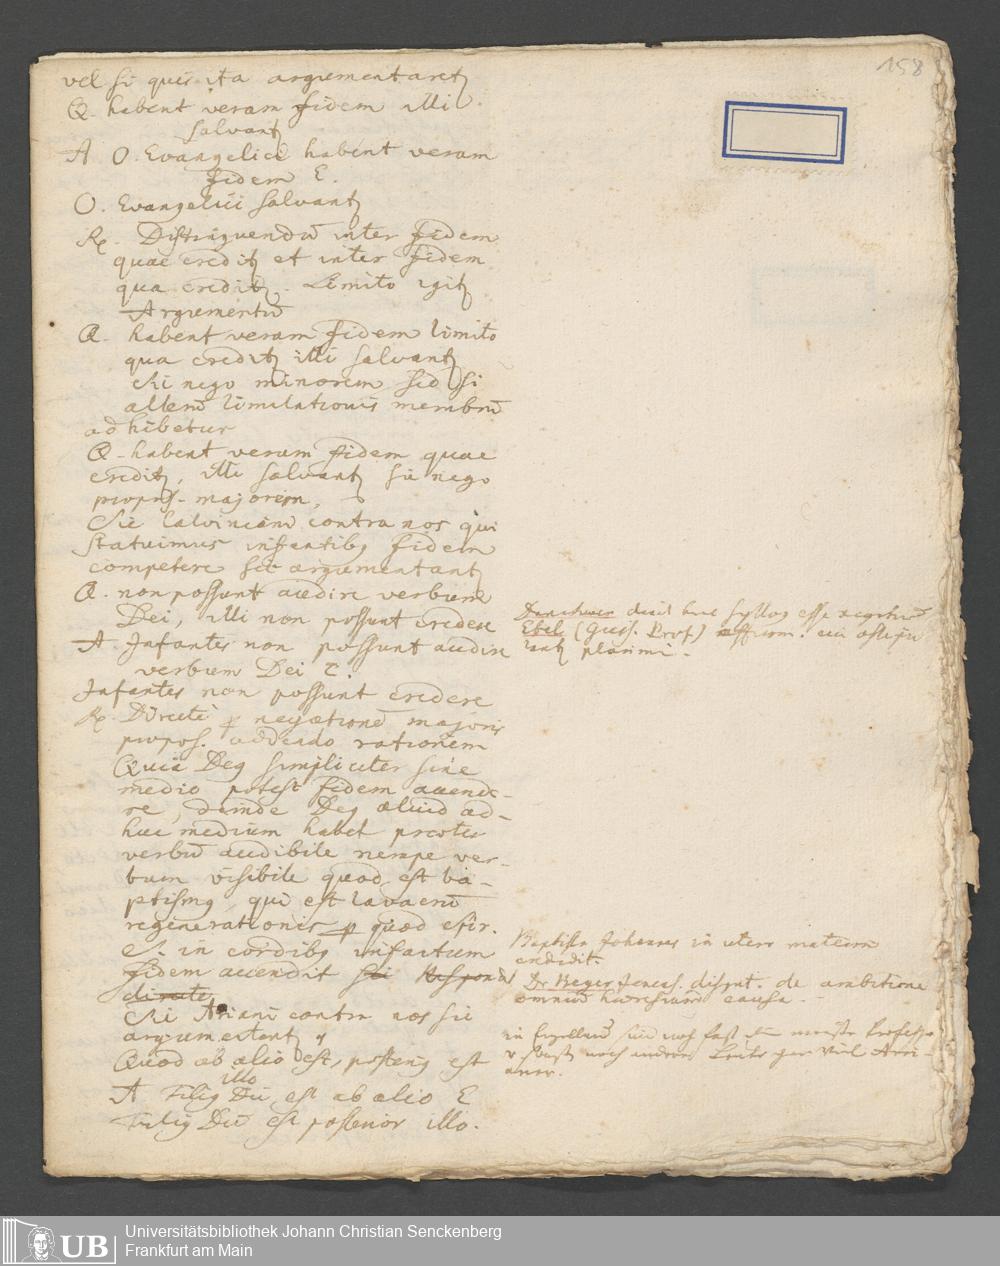 158
vel si quis ita argumentaretur
Q. habent veram fidem illi
salvantur
A. O. Evangelici habent veram
fidem E.
O. Evangelici salvantur
Re. Distinguendū inter fidem
quae creditur et inter fidem
qua creditur. Limito igitur
Argumentū
Q. habent veram fidem limito
qua creditur illi salvantur
hic nego minorem sed si
alterū limitationis membrū
adhibetur
Q. habent veram fidem quae
creditur, illi salvantur sic nego
propos. majorem,
Sic Calviniani contra nos qui
statuimus infantibus fidem
competere sic argumentantur
Q. non possunt audire verbum
Dei, illi non possunt credere
A. Infantes non possunt audire
verbum Dei E.
Infantes non possunt credere
Re. Directè p negationē majoris
propos. addendo rationem
Quia Deus simpliciter sine
medio potest fidem accende-
re, deinde Deus aliud ad-
huc medium habet praeter
verbū audibile nempe ver-
bum visibile quod est ba-
ptismus, qui est lavacrū
regenerationis p quod
in cordibus infantum
fidem accendit
Sic Ariani contra nos sic
argumentantur
Quod ab alio est, posterius est
illo
A Filius Dei est ab alio E
Filius Dei est posterior illo.
Dannhauer hunc syllog esse
Ebel (Giess. Prof.) affirm. cui
plurimi.
Baptista Johannes in utero materno
credidit.
Dr Beyer Jenens. disput. de ambitione
omnium haeresium causa.
in Engelland sind noch fast
noch andere Leute gar viel Arri-
aner.
Universitätsbibliothek Johann Christian Senckenberg
Frankfurt am Main
UB